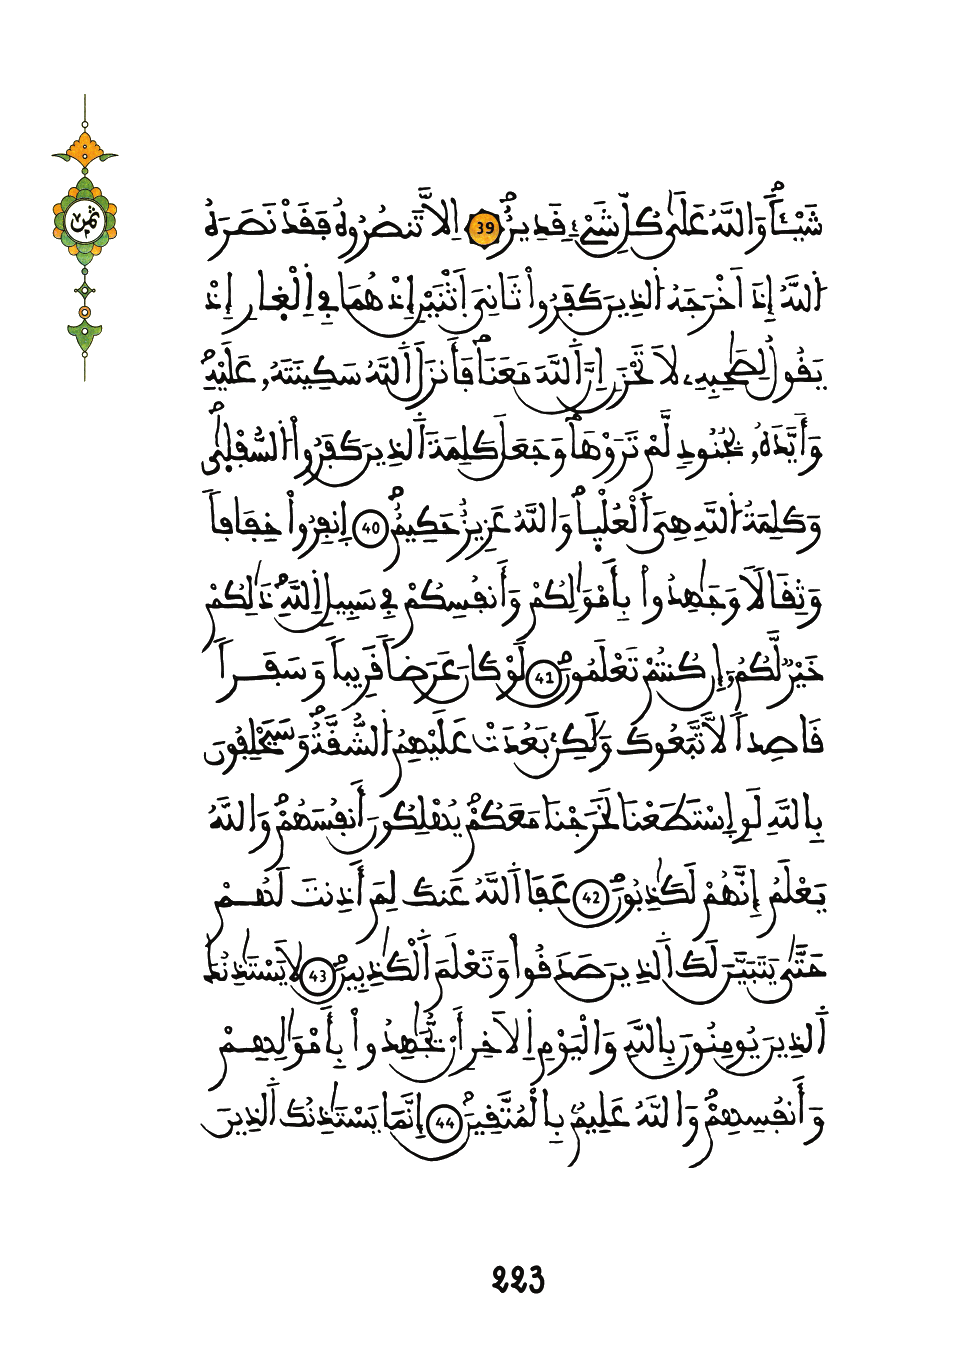 ثمن
شَيْـٔاًۖ وَاللَّهُ عَلَىٰ كُلِّ شَےْءٖ قَدِيرٌۖ 39 اِلَّا تَنصُرُوهُ فَقَدْ نَصَرَهُ
اُ۬للَّهُ إِذَ اَخْرَجَهُ اُ۬لذِينَ كَفَرُواْ ثَانِيَ اَ۪ثْنَيْنِ إِذْ هُمَا فِے اِ۬لْغِارِ إِذْ
يَقُولُ لِصَٰحِبِهِۦ لَا تَحْزَنِ اِنَّ اَ۬للَّهَ مَعَنَاۖ فَأَنزَلَ اَ۬للَّهُ سَكِينَتَهُۥ عَلَيْهِۖ
وَأَيَّدَهُۥ بِجُنُودٖ لَّمْ تَرَوْهَاۖ وَجَعَلَ كَلِمَةَ اَ۬لذِينَ كَفَرُواْ اُ۬لسُّفْلِيٰۖ
وَكَلِمَةُ اُ۬للَّهِ هِيَ اَ۬لْعُلْيِاۖ وَاللَّهُ عَزِيزٌ حَكِيمٌۖ 40 اِنفِرُواْ خِفَافاٗ
وَثِقَالاٗ وَجَٰهِدُواْ بِأَمْوَٰلِكُمْ وَأَنفُسِكُمْ فِے سَبِيلِ اِ۬للَّهِۖ ذَٰلِكُمْ
خَيْرٞ لَّكُمُۥٓ إِن كُنتُمْ تَعْلَمُونَۖ 41 لَوْ كَانَ عَرَضاٗ قَرِيباٗ وَسَفَراٗ
قَاصِداٗ لَّاتَّبَعُوكَ وَلَٰكِنۢ بَعُدَتْ عَلَيْهِمُ اُ۬لشُّقَّةُۖ وَسَيَحْلِفُونَ
بِاللَّهِ لَوِ اِسْتَطَعْنَا لَخَرَجْنَا مَعَكُمْۖ يُهْلِكُونَ أَنفُسَهُمْۖ وَاللَّهُ
يَعْلَمُ إِنَّهُمْ لَكَٰذِبُونَۖ 42 عَفَا اَ۬للَّهُ عَنكَ لِمَ أَذِنتَ لَهُمْ
حَتَّىٰ يَتَبَيَّنَ لَكَ اَ۬لذِينَ صَدَقُواْ وَتَعْلَمَ اَ۬لْكَٰذِبِينَۖ 43 لَا يَسْتَٰذِنُكَ
اَ۬لذِينَ يُومِنُونَ بِاللَّهِ وَالْيَوْمِ اِ۬لَاخِرِ أَنْ يُّجَٰهِدُواْ بِأَمْوَٰلِهِمْ
وَأَنفُسِهِمْۖ وَاللَّهُ عَلِيمُۢ بِالْمُتَّقِينَۖ 44 إِنَّمَا يَسْتَٰذِنُكَ اَ۬لذِينَ
223